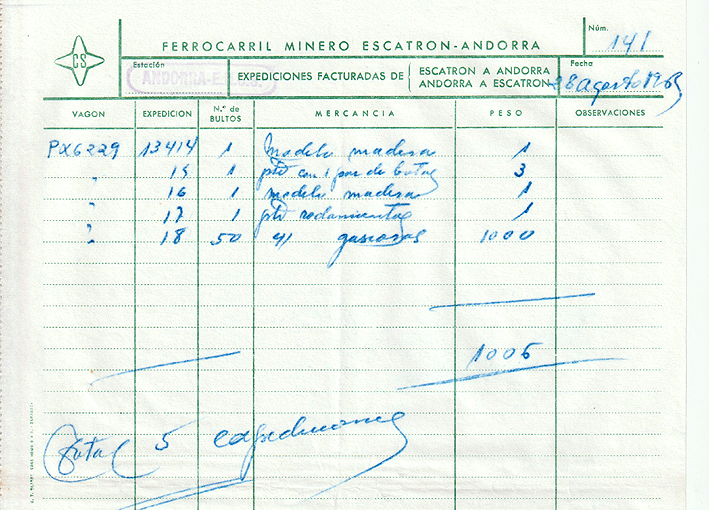 CS
FERROCARRIL MINERO ESCATRON-ANDORRA
Núm.
141
Estación
ANDORRA-E.
EXPEDICIONES FACTURADAS DE
ESCATRON A ANDORRA
ANDORRA A ESCATRON
Fecha
28 agosto 1963
VAGON EXPEDICION N.º de BULTOS MERCANCIA PESO OBSERVACIONES
PX6229 13414 1 Modelo madera 1
" 15 1 ptE con 1 par de botas 3
" 16 1 modelo madera 1
" 17 1 ptE rodamientos 1
" 18 50 c/ gaseosas 1000
1006
Total 5 expediciones